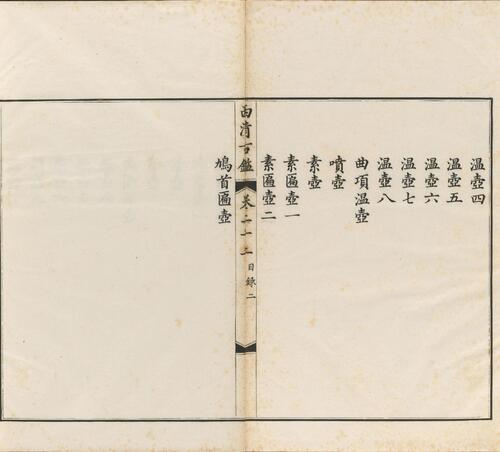 温壺四
温壺五
温壺六
温壺七
温壺八
曲項温壺
噴壺
素壺
素匾壺一
素匾壺二
西清古鑑 卷二十二 目錄二
鳩首匾壺